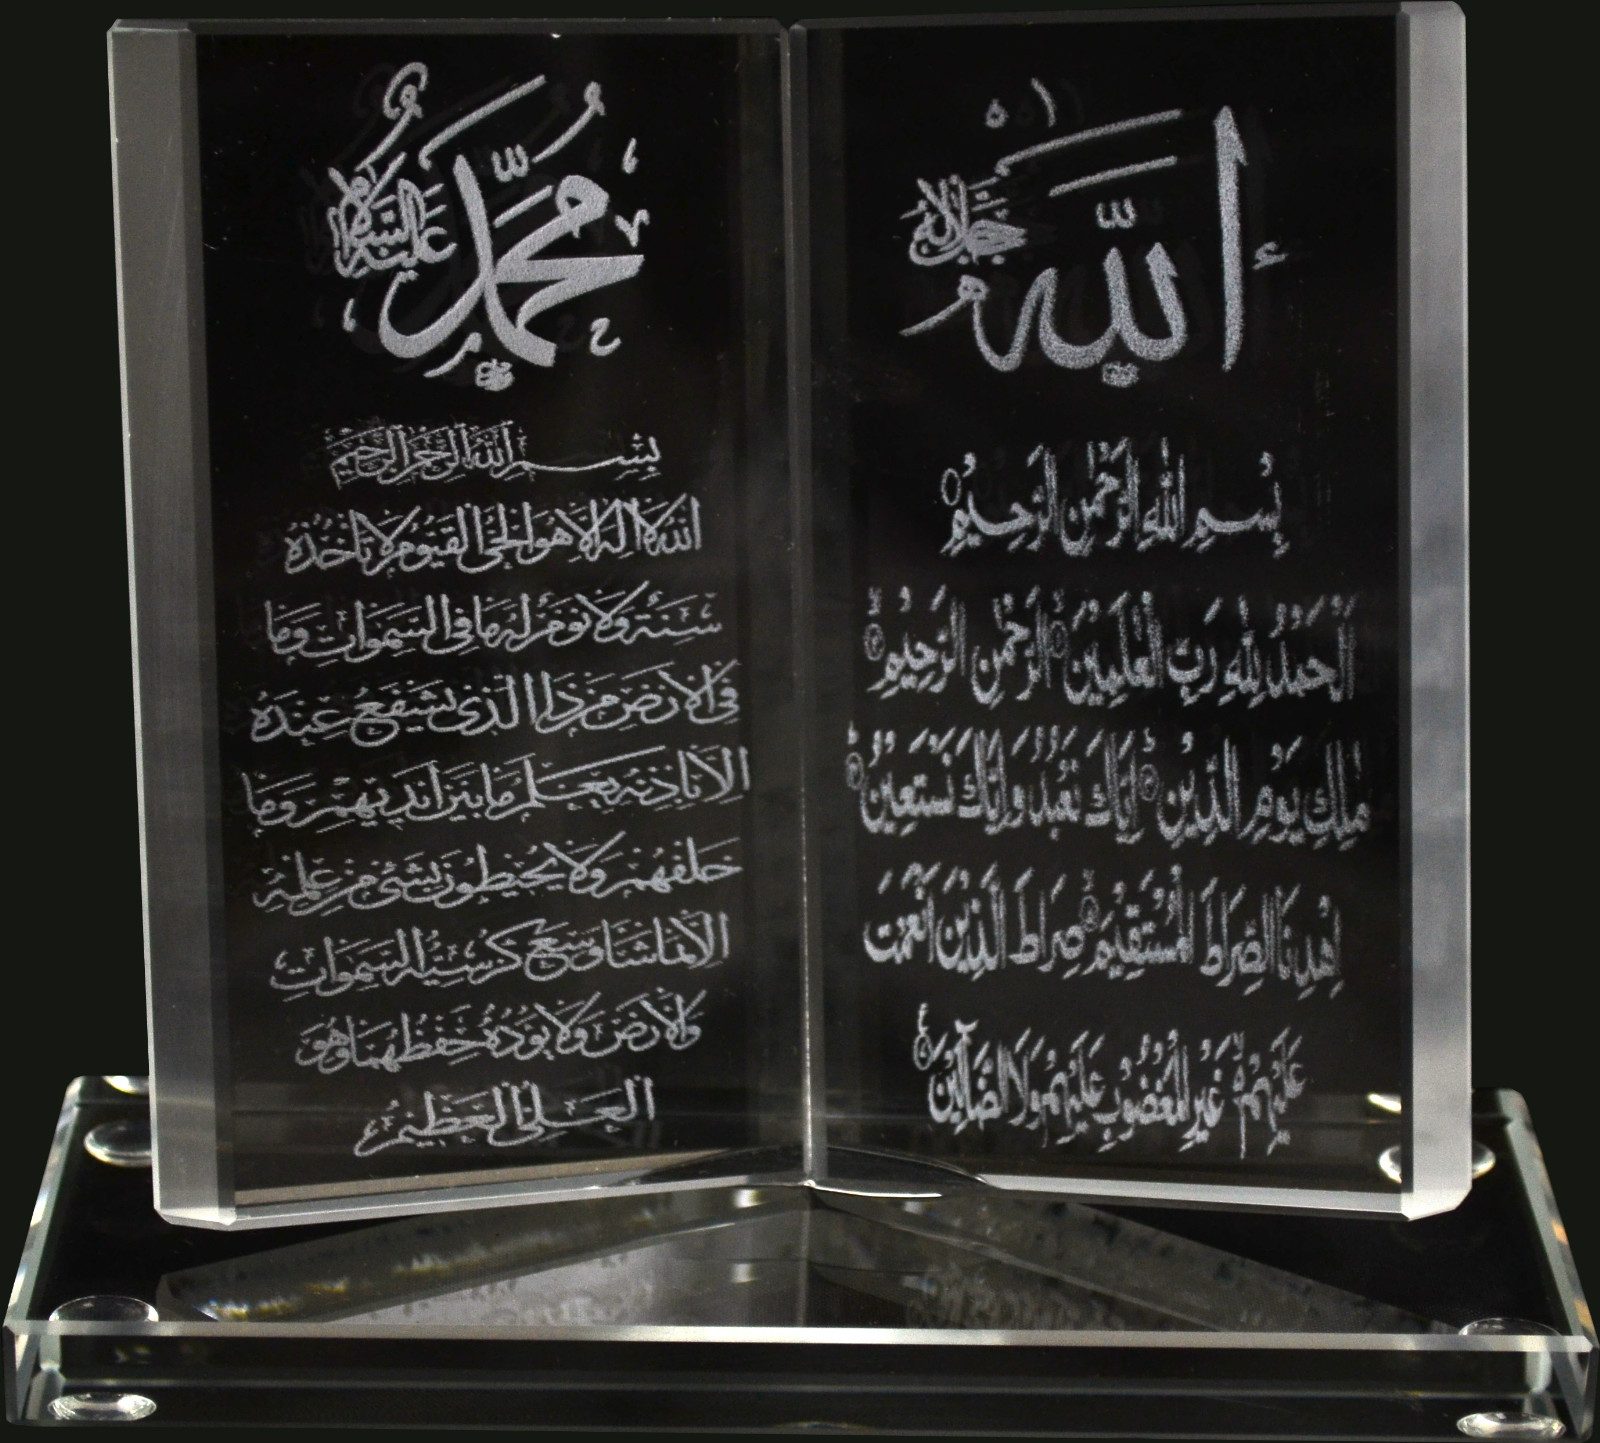 الله
جل جلاله
بِسْمِ اللهِ الرَّحْمٰنِ الرَّحِيْمِ
اَلْحَمْدُ لِلّٰهِ رَبِّ الْعٰلَمِيْنَ الرَّحْمٰنِ الرَّحِيْمِ
مٰلِكِ يَوْمِ الدِّيْنِ اِيَّاكَ نَعْبُدُ وَاِيَّاكَ نَسْتَعِيْنُ
اِهْدِنَا الصِّرَاطَ الْمُسْتَقِيْمَ صِرَاطَ الَّذِيْنَ اَنْعَمْتَ
عَلَيْهِمْ غَيْرِ الْمَغْضُوْبِ عَلَيْهِمْ وَلَا الضَّآلِّيْنَ
محمد
عليه السلام
بسم الله الرحمن الرحيم
الله لا اله الا هو الحي القيوم لا تأخذه
سنة ولا نوم له ما في السموات وما
في الارض من ذا الذي يشفع عنده
الا باذنه يعلم ما بين ايديهم وما
خلفهم ولا يحيطون بشئ من علمه
الا بما شاء وسع كرسيه السموات
والارض ولا يؤده حفظهما وهو
العلي العظيم